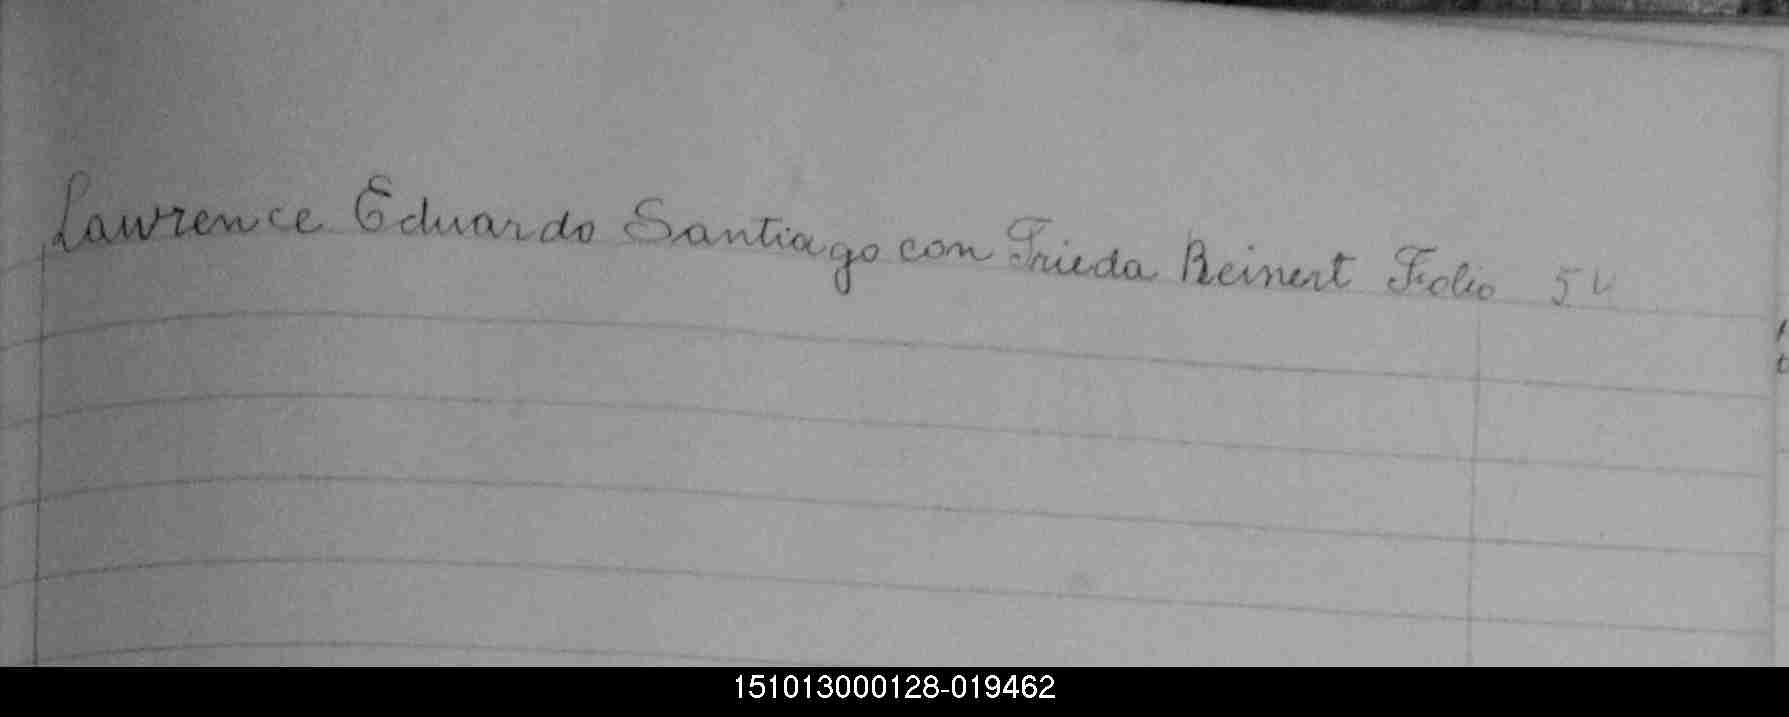 Lawrence Eduardo Santiago con Frieda Reinert Folio 5
151013000128-019462